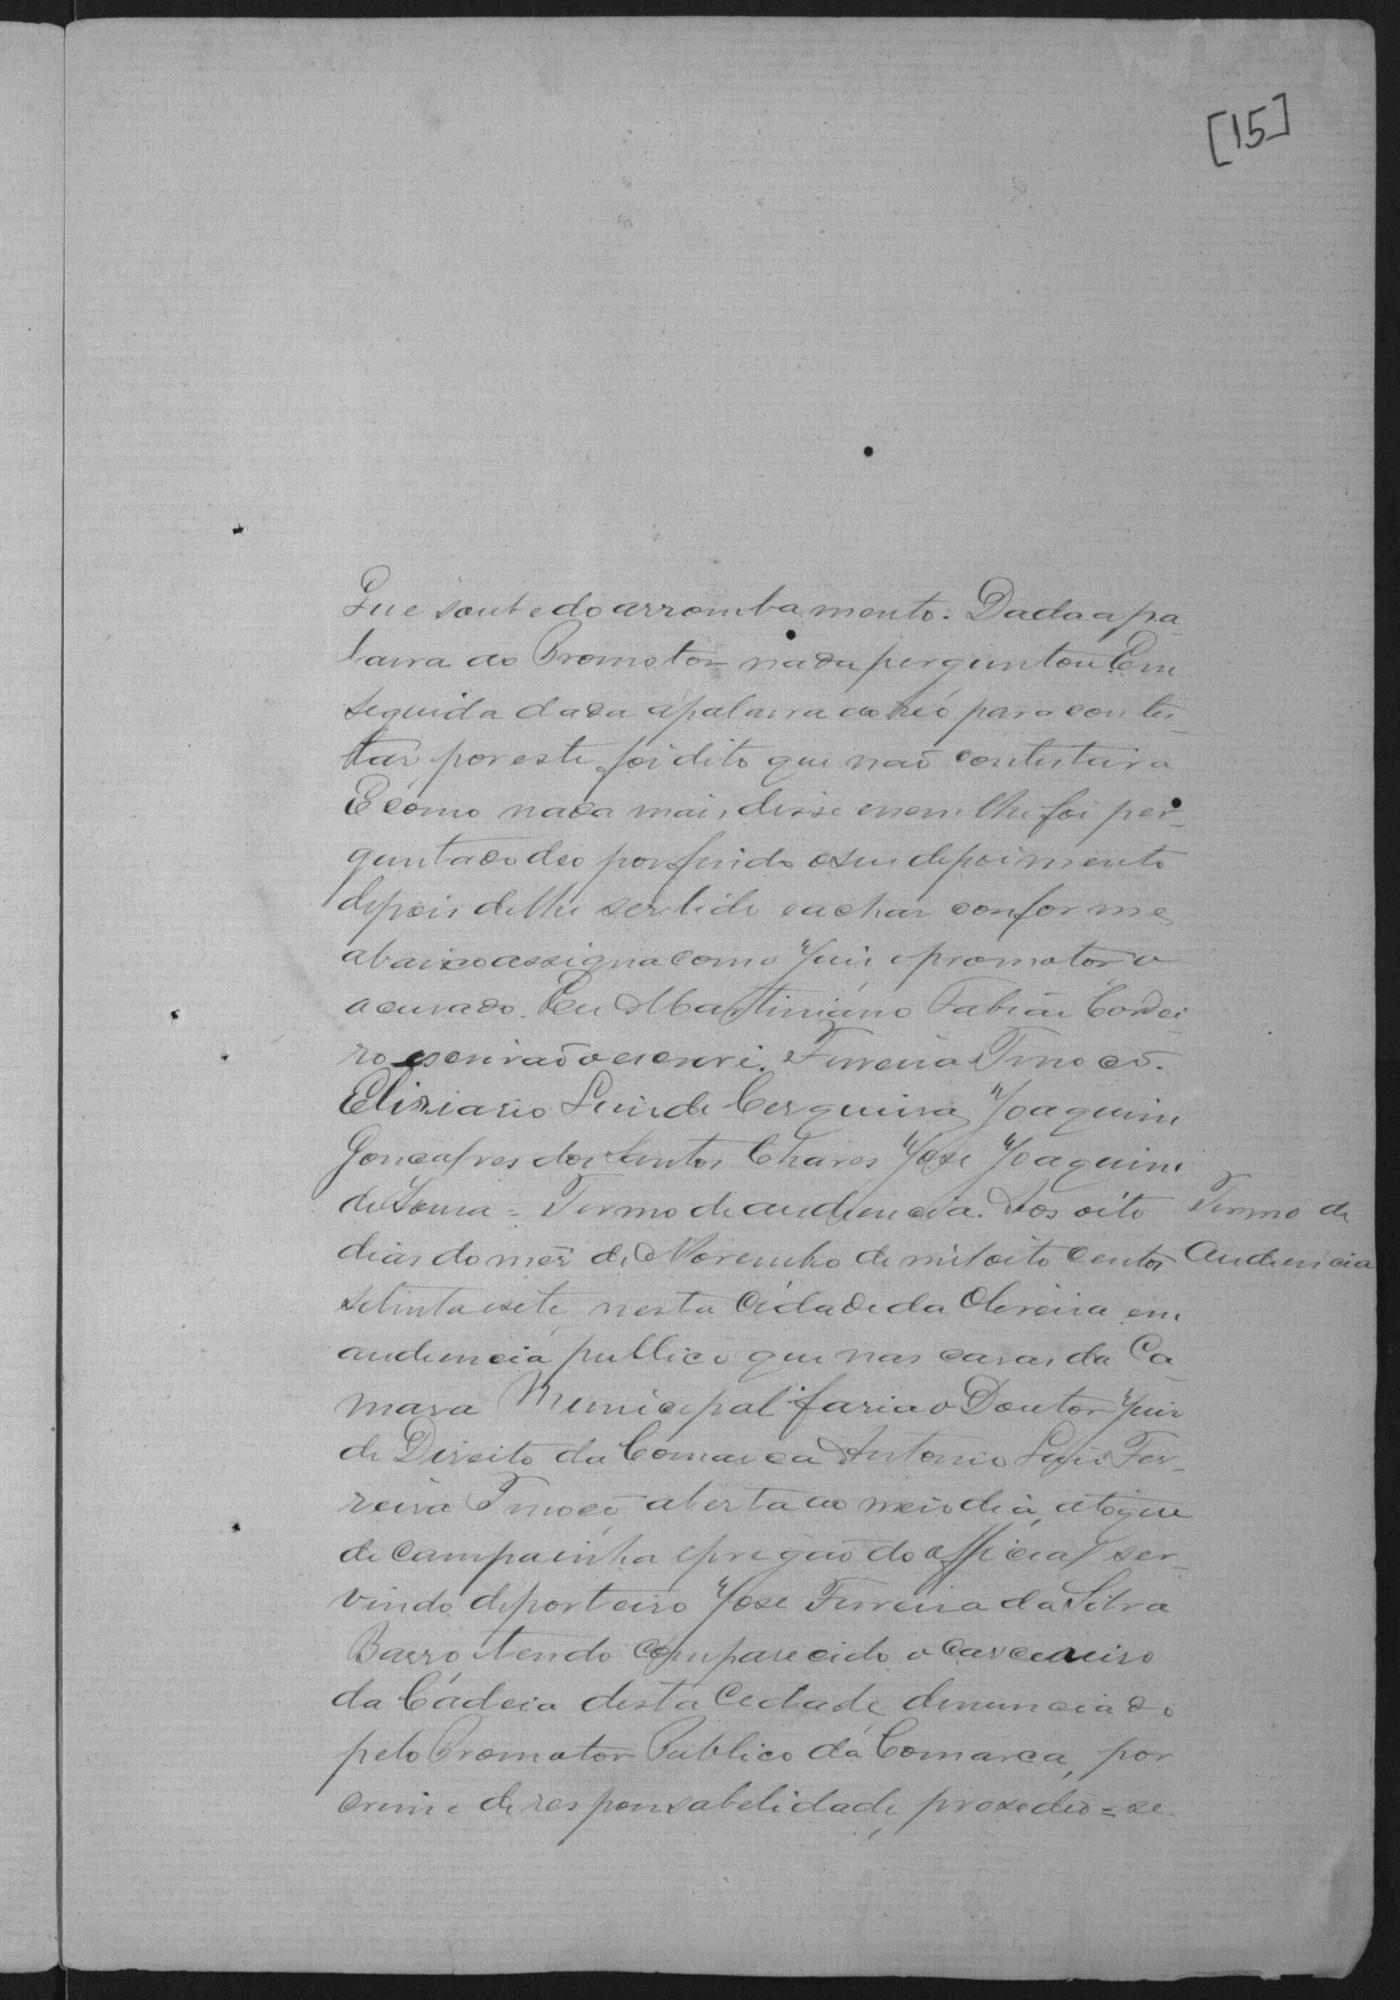 [15]
Que soube do arrombamento. Dada a pa-
lavra ao Promotor nada perguntou Em
seguida dada a palavra ao reó para contes-
tar por este foi dito que naõ contestava
E como nada mais disse enem lhe foi per-
guntado deo por findo o seu depoimento
depois delhe ser lido e achar conforme
abaixo assigna como Juiz e promotor o
acusado. Eu Martiniano Fabian Cordei-
ro escrivaõ o escrevi. Ferreira Tinocõ.
Eliziario Luiz de Cerqueira Joaquim
Gonçalves dos Santos Chaves José Joaquim
de Souza = Termo de audiencia. Aos oito
Termo de
dias do mês de Novembro de mil oito centos
Audiencia
setenta e sete nesta Cidade da Oliveira em
audiencia publica que nas casas da Ca-
mara Municipal faria o Doutor Juiz
de Direito da Comarca Antonio Luis Fer-
reira Tinocõ aberta ao meio dia, atoque
de campainha e pregaõ do official ser-
vindo de porteiro José Ferreira da Silva
Barro tendo comparecido o carcereiro
da Cadeia desta Cidade, denunciado
pelo Promotor Publico da Comarca, por
crime de responsabelidade, prosedeo=se